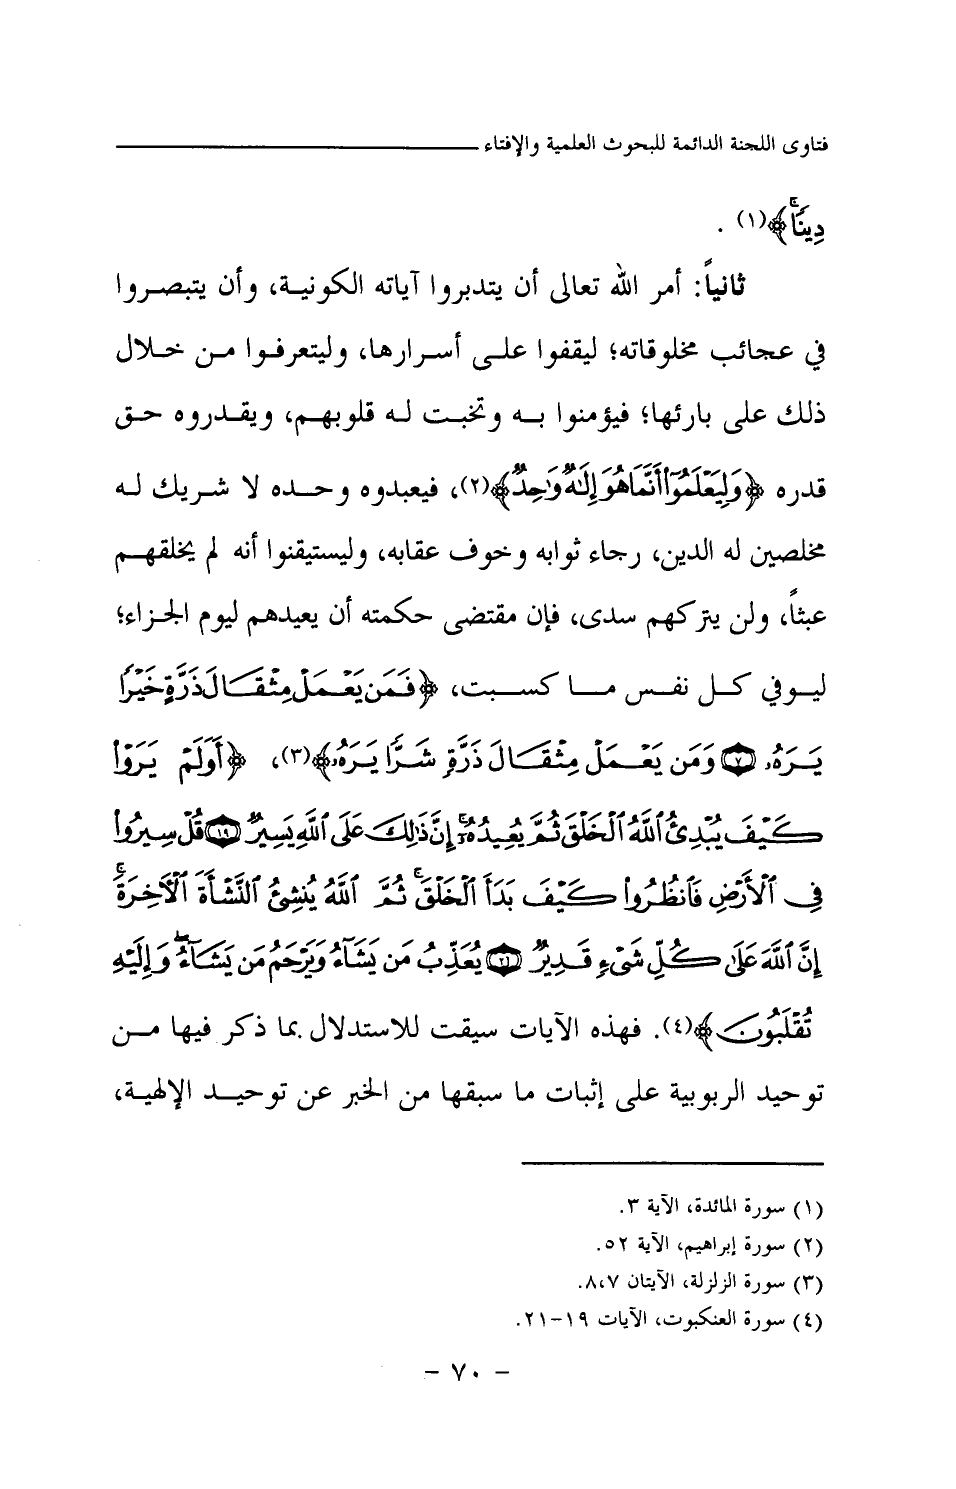 فتاوى اللجنة الدائمة للبحوث العلمية والإفتاء
دِينًا ۚ﴾(١) .
ثانياً: أمر الله تعالى أن يتدبروا آياته الكونية، وأن يتبصروا
في عجائب مخلوقاته؛ ليقفوا على أسرارها، وليتعرفوا من خلال
ذلك على بارئها؛ فيؤمنوا به وتخبت له قلوبهم، ويقدروه حق
قدره ﴿وَلِيَعْلَمُوٓا۟ أَنَّمَا هُوَ إِلَـٰهٌ وَٰحِدٌ﴾(٢)، فيعبدوه وحده لا شريك له
مخلصين له الدين، رجاء ثوابه وخوف عقابه، وليستيقنوا أنه لم يخلقهم
عبثاً، ولن يتركهم سدى، فإن مقتضى حكمته أن يعيدهم ليوم الجزاء؛
ليوفي كل نفس ما كسبت، ﴿فَمَن يَعْمَلْ مِثْقَالَ ذَرَّةٍ خَيْرًا
يَرَهُۥ ۝٧ وَمَن يَعْمَلْ مِثْقَالَ ذَرَّةٍ شَرًّا يَرَهُۥ﴾(٣)، ﴿أَوَلَمْ يَرَوْا۟
كَيْفَ يُبْدِئُ ٱللَّهُ ٱلْخَلْقَ ثُمَّ يُعِيدُهُۥٓ ۚ إِنَّ ذَٰلِكَ عَلَى ٱللَّهِ يَسِيرٌ ۝١٩ قُلْ سِيرُوا۟
فِى ٱلْأَرْضِ فَٱنظُرُوا۟ كَيْفَ بَدَأَ ٱلْخَلْقَ ۚ ثُمَّ ٱللَّهُ يُنشِئُ ٱلنَّشْأَةَ ٱلْـَٔاخِرَةَ ۚ
إِنَّ ٱللَّهَ عَلَىٰ كُلِّ شَىْءٍ قَدِيرٌ ۝٢٠ يُعَذِّبُ مَن يَشَآءُ وَيَرْحَمُ مَن يَشَآءُ ۖ وَإِلَيْهِ
تُقْلَبُونَ﴾(٤). فهذه الآيات سيقت للاستدلال بما ذكر فيها من
توحيد الربوبية على إثبات ما سبقها من الخبر عن توحيد الإلهية،
(١) سورة المائدة، الآية ٣.
(٢) سورة إبراهيم، الآية ٥٢.
(٣) سورة الزلزلة، الآيتان ٨،٧.
(٤) سورة العنكبوت، الآيات ١٩-٢١.
- ٧٠ -